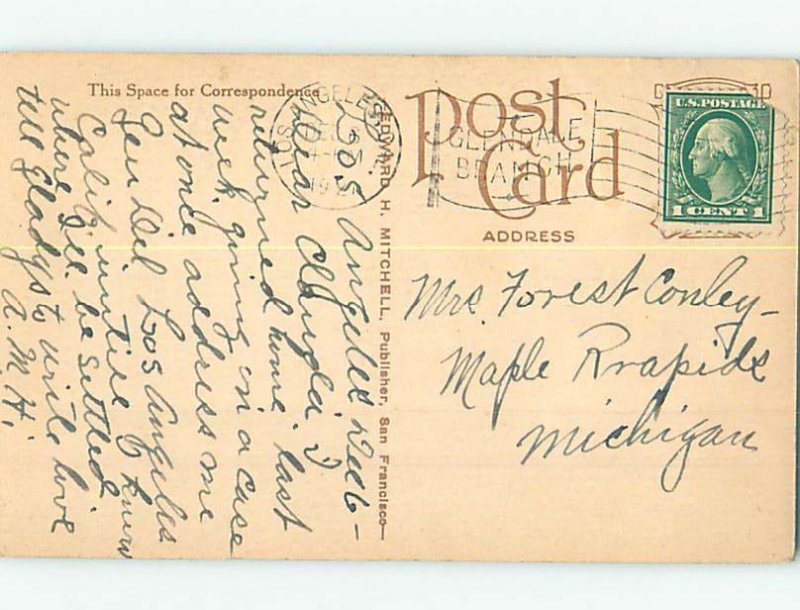 This Space for Correspondence
Los Angeles Dec 6 -
Dear Claudia. I
returned home. last
week, going on a case
at once address me
Gen Del. Los Angeles
Calif. untire I know
where I'll be settled
tell Gladys to write love
A. M. H.
EDWARD H. MITCHELL, Publisher, San Francisco—
LOS ANGELES
GLENDALE
BRANCH
Post
Card
ADDRESS
U.S. POSTAGE
1 CENT 1
Mrs. Forest Conley -
Maple Rrapids
Michigan